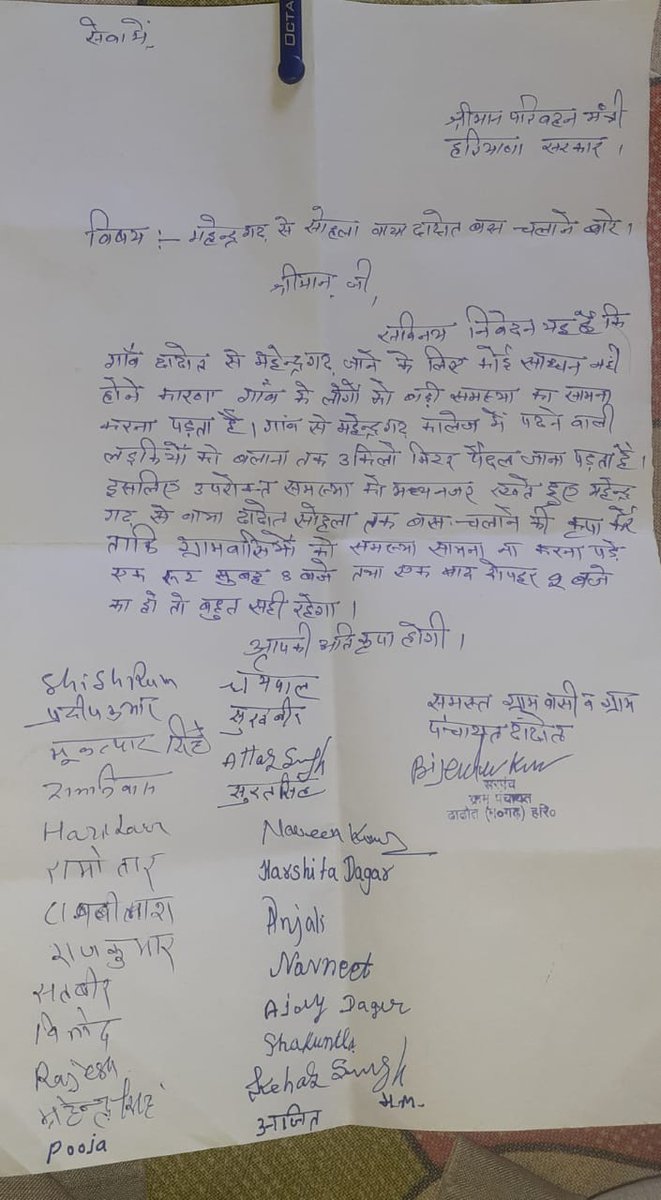 OCTA
सेवा में,
श्रीमान परिवहन मंत्री
हरियाणा सरकार ।
विषय :- महेन्द्रगढ़ से सोहला वाया दादोत बस चलाने बारे ।
श्रीमान जी,
सविनय निवेदन यह है कि
गाँव दादोत से महेन्द्रगढ़ जाने के लिए कोई साधन नही
होने कारण गाँव के लोगों को बड़ी समस्या का सामना
करना पड़ता है । गांव से महेन्द्रगढ़ कालेज में पढने वाली
लड़कियों को बलाना तक 3 किलो मिटर पैदल जाना पड़ता है ।
इसलिए उपरोक्त समस्या को मध्यनजर रखते हुए महेन्द्र
गढ़ से वाया दादोत सोहला तक बस चलाने की कृपा करें
ताकि ग्रामवासियों को समस्या सामना ना करना पड़े
एक रूट सुबह 8 बजे तथा एक बार दोपहर 2 बजे
का हो तो बहुत सही रहेगा ।
आपकी अति कृपा होगी ।
समस्त ग्राम वासी व ग्राम
पंचायत दादोत
सरपंच
ग्राम पंचायत
दादोत (म०गढ़) हरि०
ShiShRam
प्रदीप कुमार
रामनिवास
रामोतार
राजकुमार
सतबीर
विनोद
Rajesh
महेन्द्र सिंह
Pooja
धर्मपाल
सुखबीर
Attar Singh
सुरत सिंह
Naveen Kumar
Harshita Dagar
Anjali
Navneet
Ajay Dagar
Shakuntla
Singh
अजित